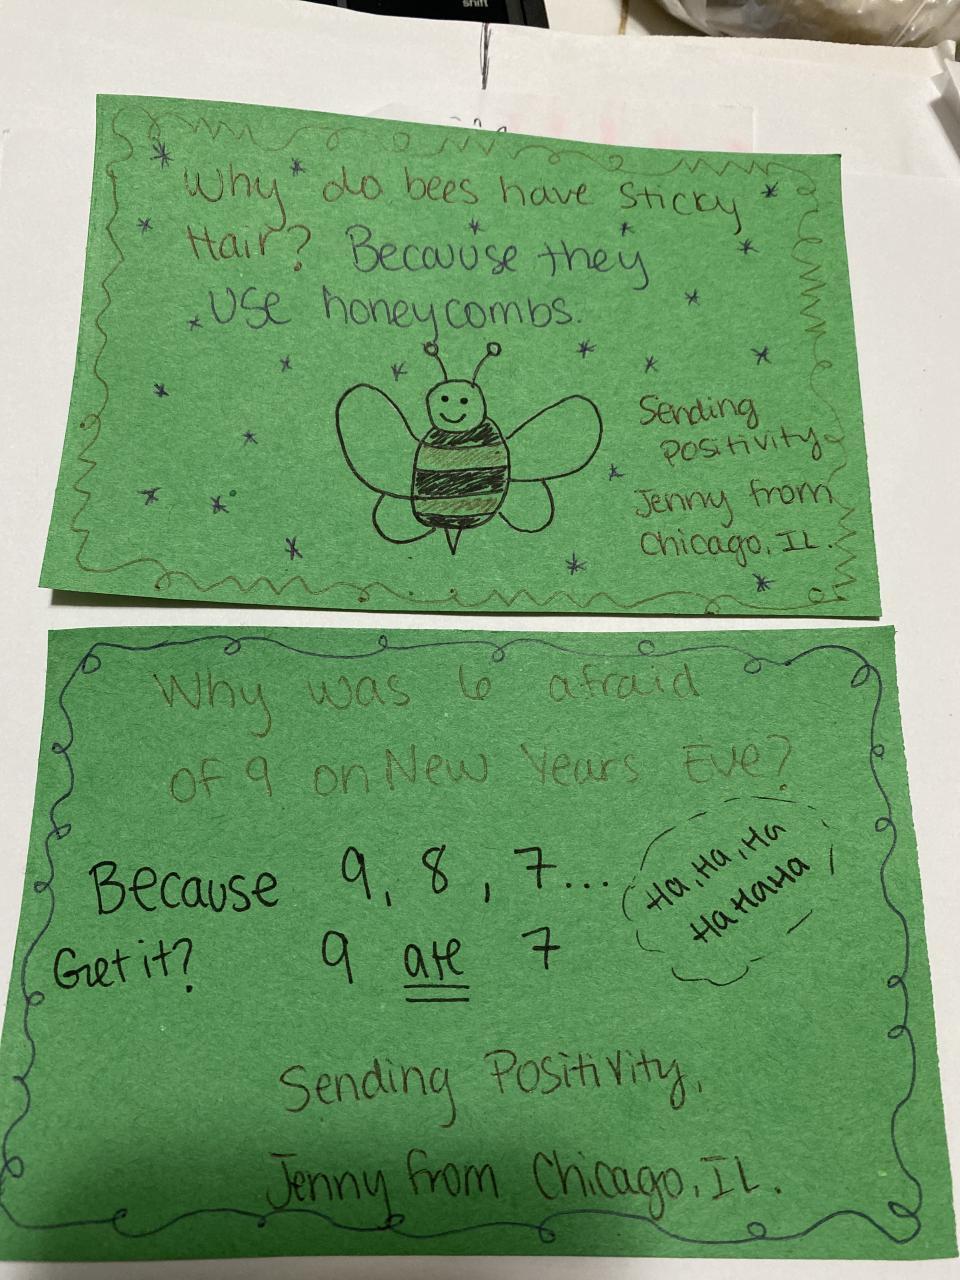 shift
Why do bees have sticky
Hair? Because they
use honeycombs.
Sending
Positivity
Jenny from
Chicago, IL.
Why was 6 afraid
of 9 on New Years Eve?
Because 9, 8, 7...
Ha, Ha, Ha
Ha HaHa
Get it? 9 ate 7
Sending Positivity,
Jenny from Chicago, IL.